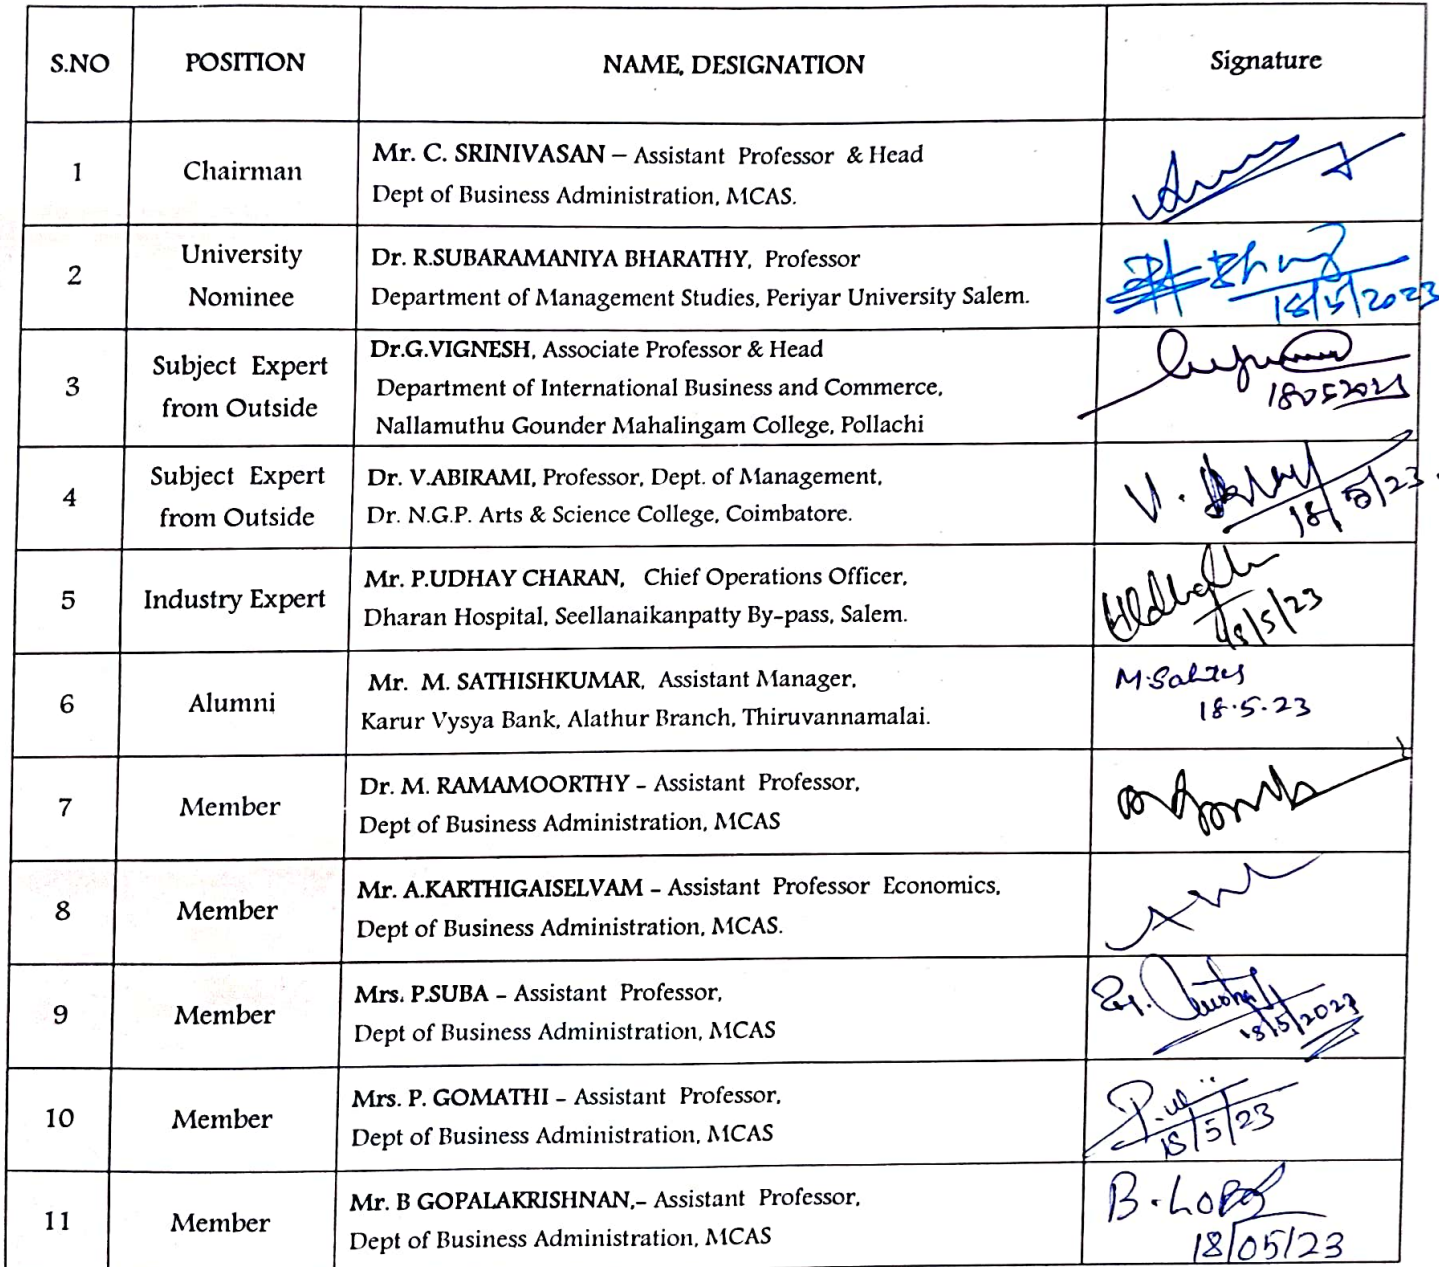 S.NO POSITION NAME, DESIGNATION Signature
1 Chairman Mr. C. SRINIVASAN – Assistant Professor & Head
Dept of Business Administration, MCAS.
2 University Nominee Dr. R.SUBARAMANIYA BHARATHY, Professor
Department of Management Studies, Periyar University Salem.
18/5/2023
3 Subject Expert from Outside Dr.G.VIGNESH, Associate Professor & Head
Department of International Business and Commerce,
Nallamuthu Gounder Mahalingam College, Pollachi
4 Subject Expert from Outside Dr. V.ABIRAMI, Professor, Dept. of Management,
Dr. N.G.P. Arts & Science College, Coimbatore.
18/5/23
5 Industry Expert Mr. P.UDHAY CHARAN, Chief Operations Officer,
Dharan Hospital, Seellanaikanpatty By-pass, Salem.
18/5/23
6 Alumni Mr. M. SATHISHKUMAR, Assistant Manager,
Karur Vysya Bank, Alathur Branch, Thiruvannamalai.
18.5.23
7 Member Dr. M. RAMAMOORTHY – Assistant Professor,
Dept of Business Administration, MCAS
8 Member Mr. A.KARTHIGAISELVAM – Assistant Professor Economics,
Dept of Business Administration, MCAS.
9 Member Mrs. P.SUBA – Assistant Professor,
Dept of Business Administration, MCAS
18/5/2023
10 Member Mrs. P. GOMATHI – Assistant Professor,
Dept of Business Administration, MCAS
18/5/23
11 Member Mr. B GOPALAKRISHNAN,– Assistant Professor,
Dept of Business Administration, MCAS
18/05/23